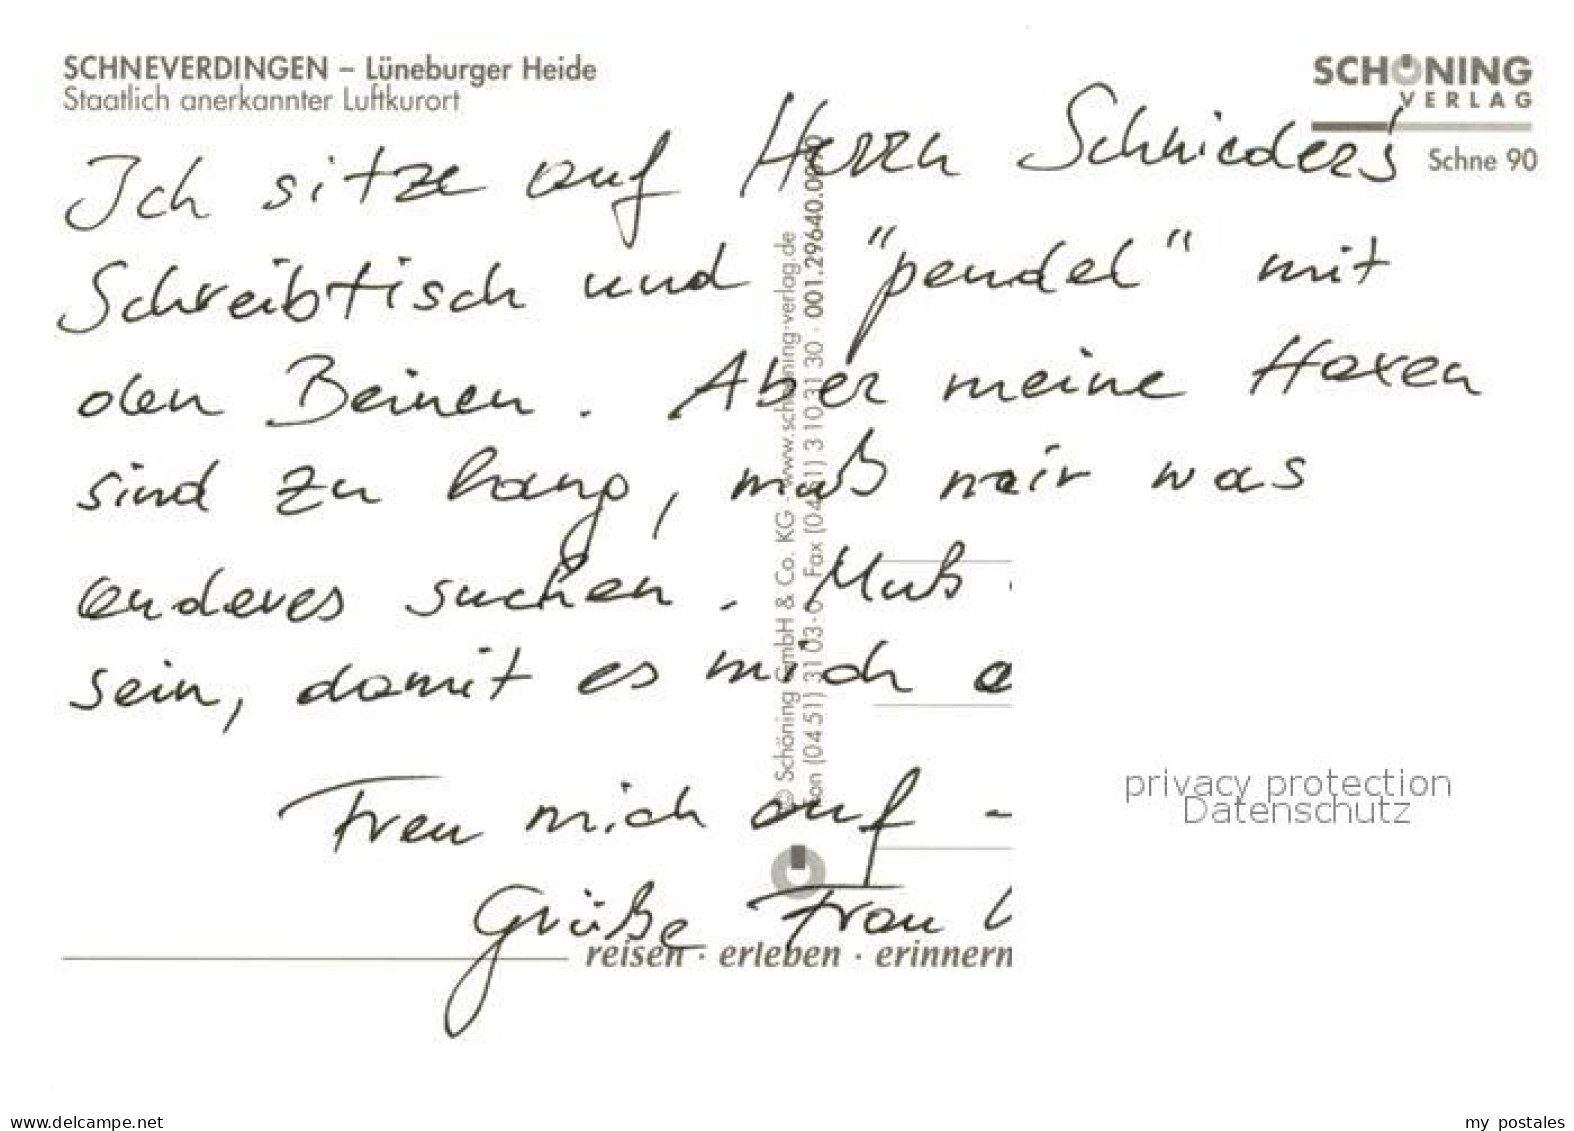 SCHNEVERDINGEN – Lüneburger Heide
Staatlich anerkannter Luftkurort
SCHÖNING
VERLAG
Schne 90
Ich sitze auf Herrn Schnieders
Schreibtisch und "pendel" mit
den Beinen. Aber meine Haxen
sind zu lang, muß mir was
anderes suchen. Muß
sein, damit es mich
Freu mich auf -
Grüße Frau
© Schöning GmbH & Co. KG · www.schoening-verlag.de
Fon (0451) 3103-0 · Fax (0451) 3103130 · 001.29640.0090
reisen · erleben · erinnern
privacy protection
Datenschutz
www.delcampe.net
my postales